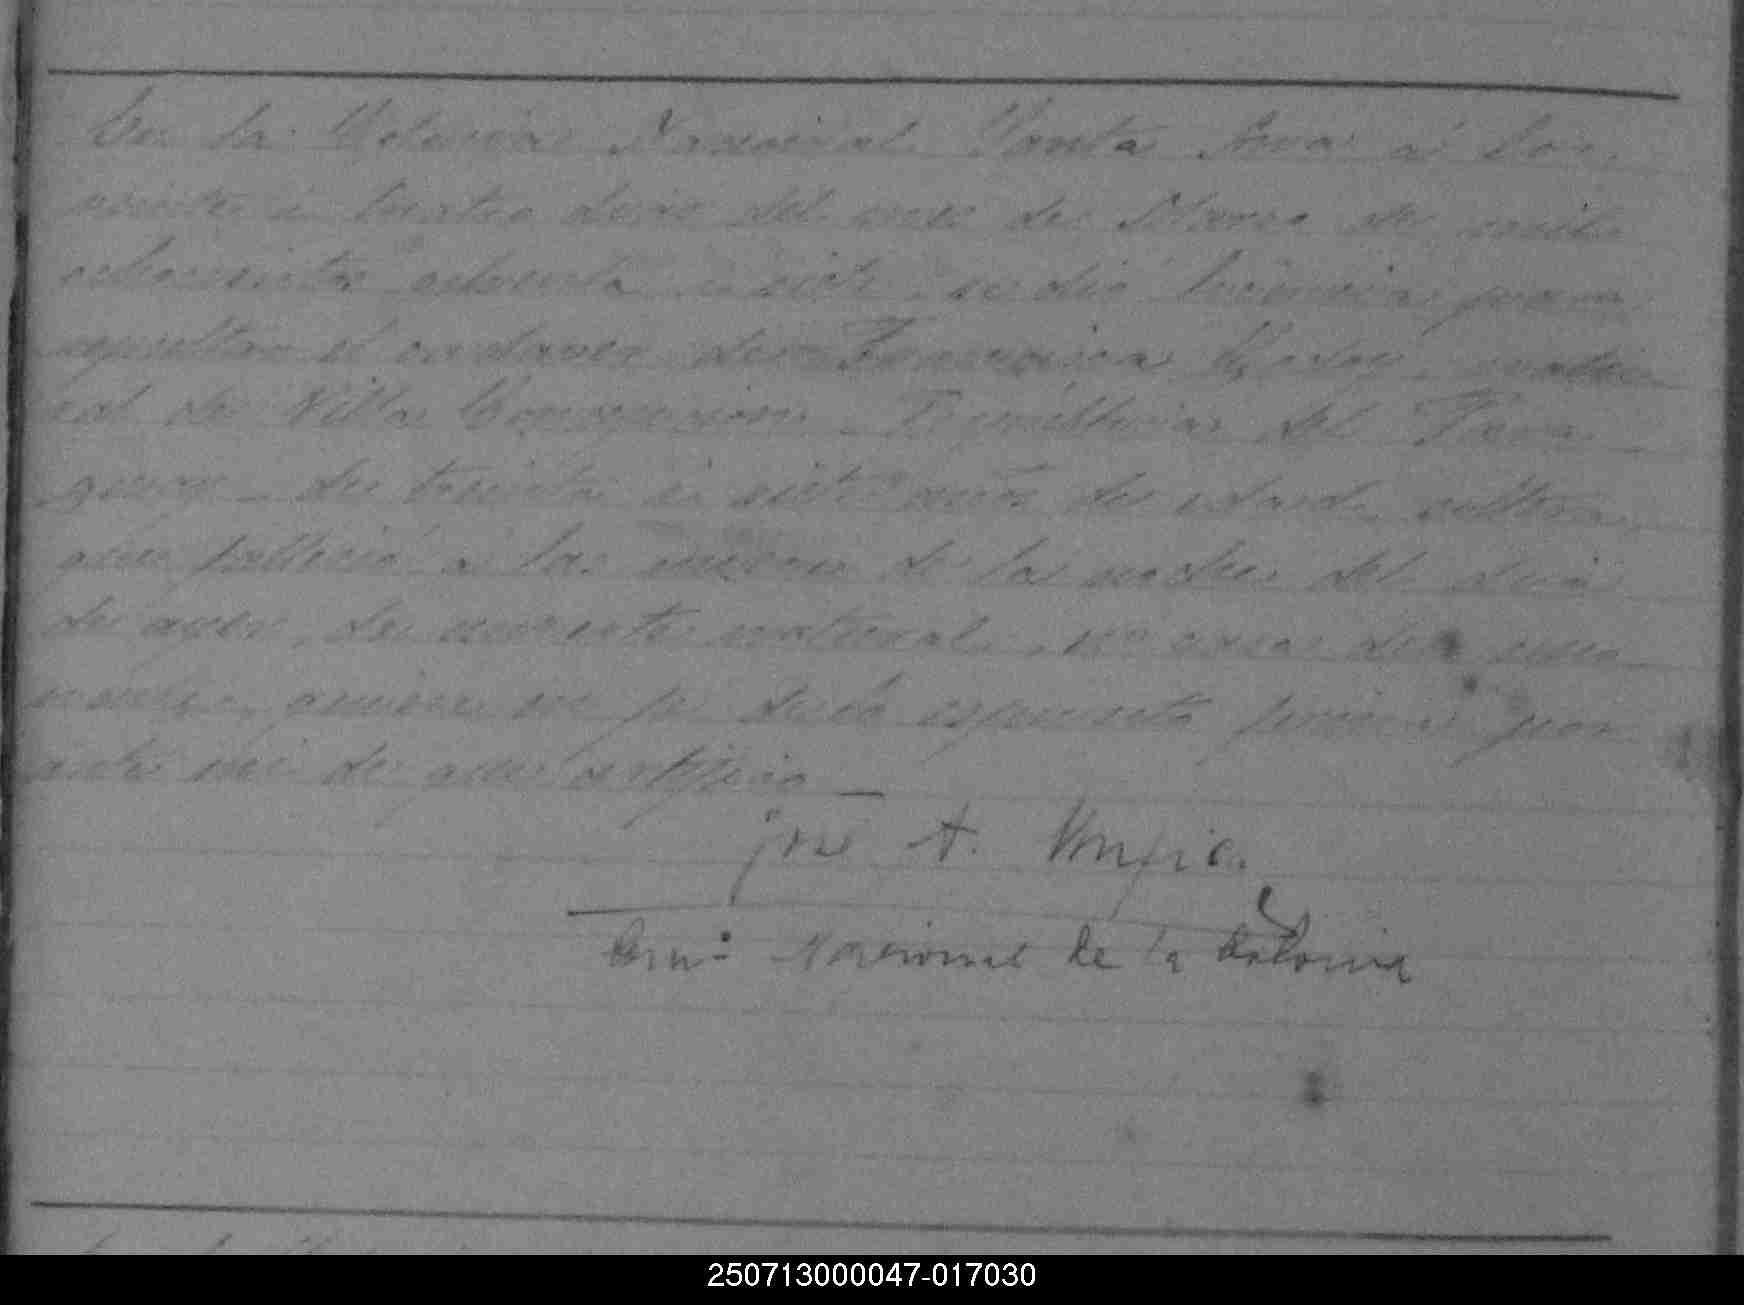 En la Colonia Nacional Santa Ana á los
veinte i cuatro dias del mes de Marzo de mil
ochocientos ochenta i siete, se dió licencia para
sepultar el cadaver de Francisca Godoy, natu-
ral de Villa Concepcion, República del Para-
guay, de treinta i siete años de edad, soltera,
que falleció á las de la noche del dia
de ayer, de muerte natural, en casa de su
de todo lo expuesto
ante mi de que certifico —
José A.
Com.º Nacional de la Colonia
250713000047-017030